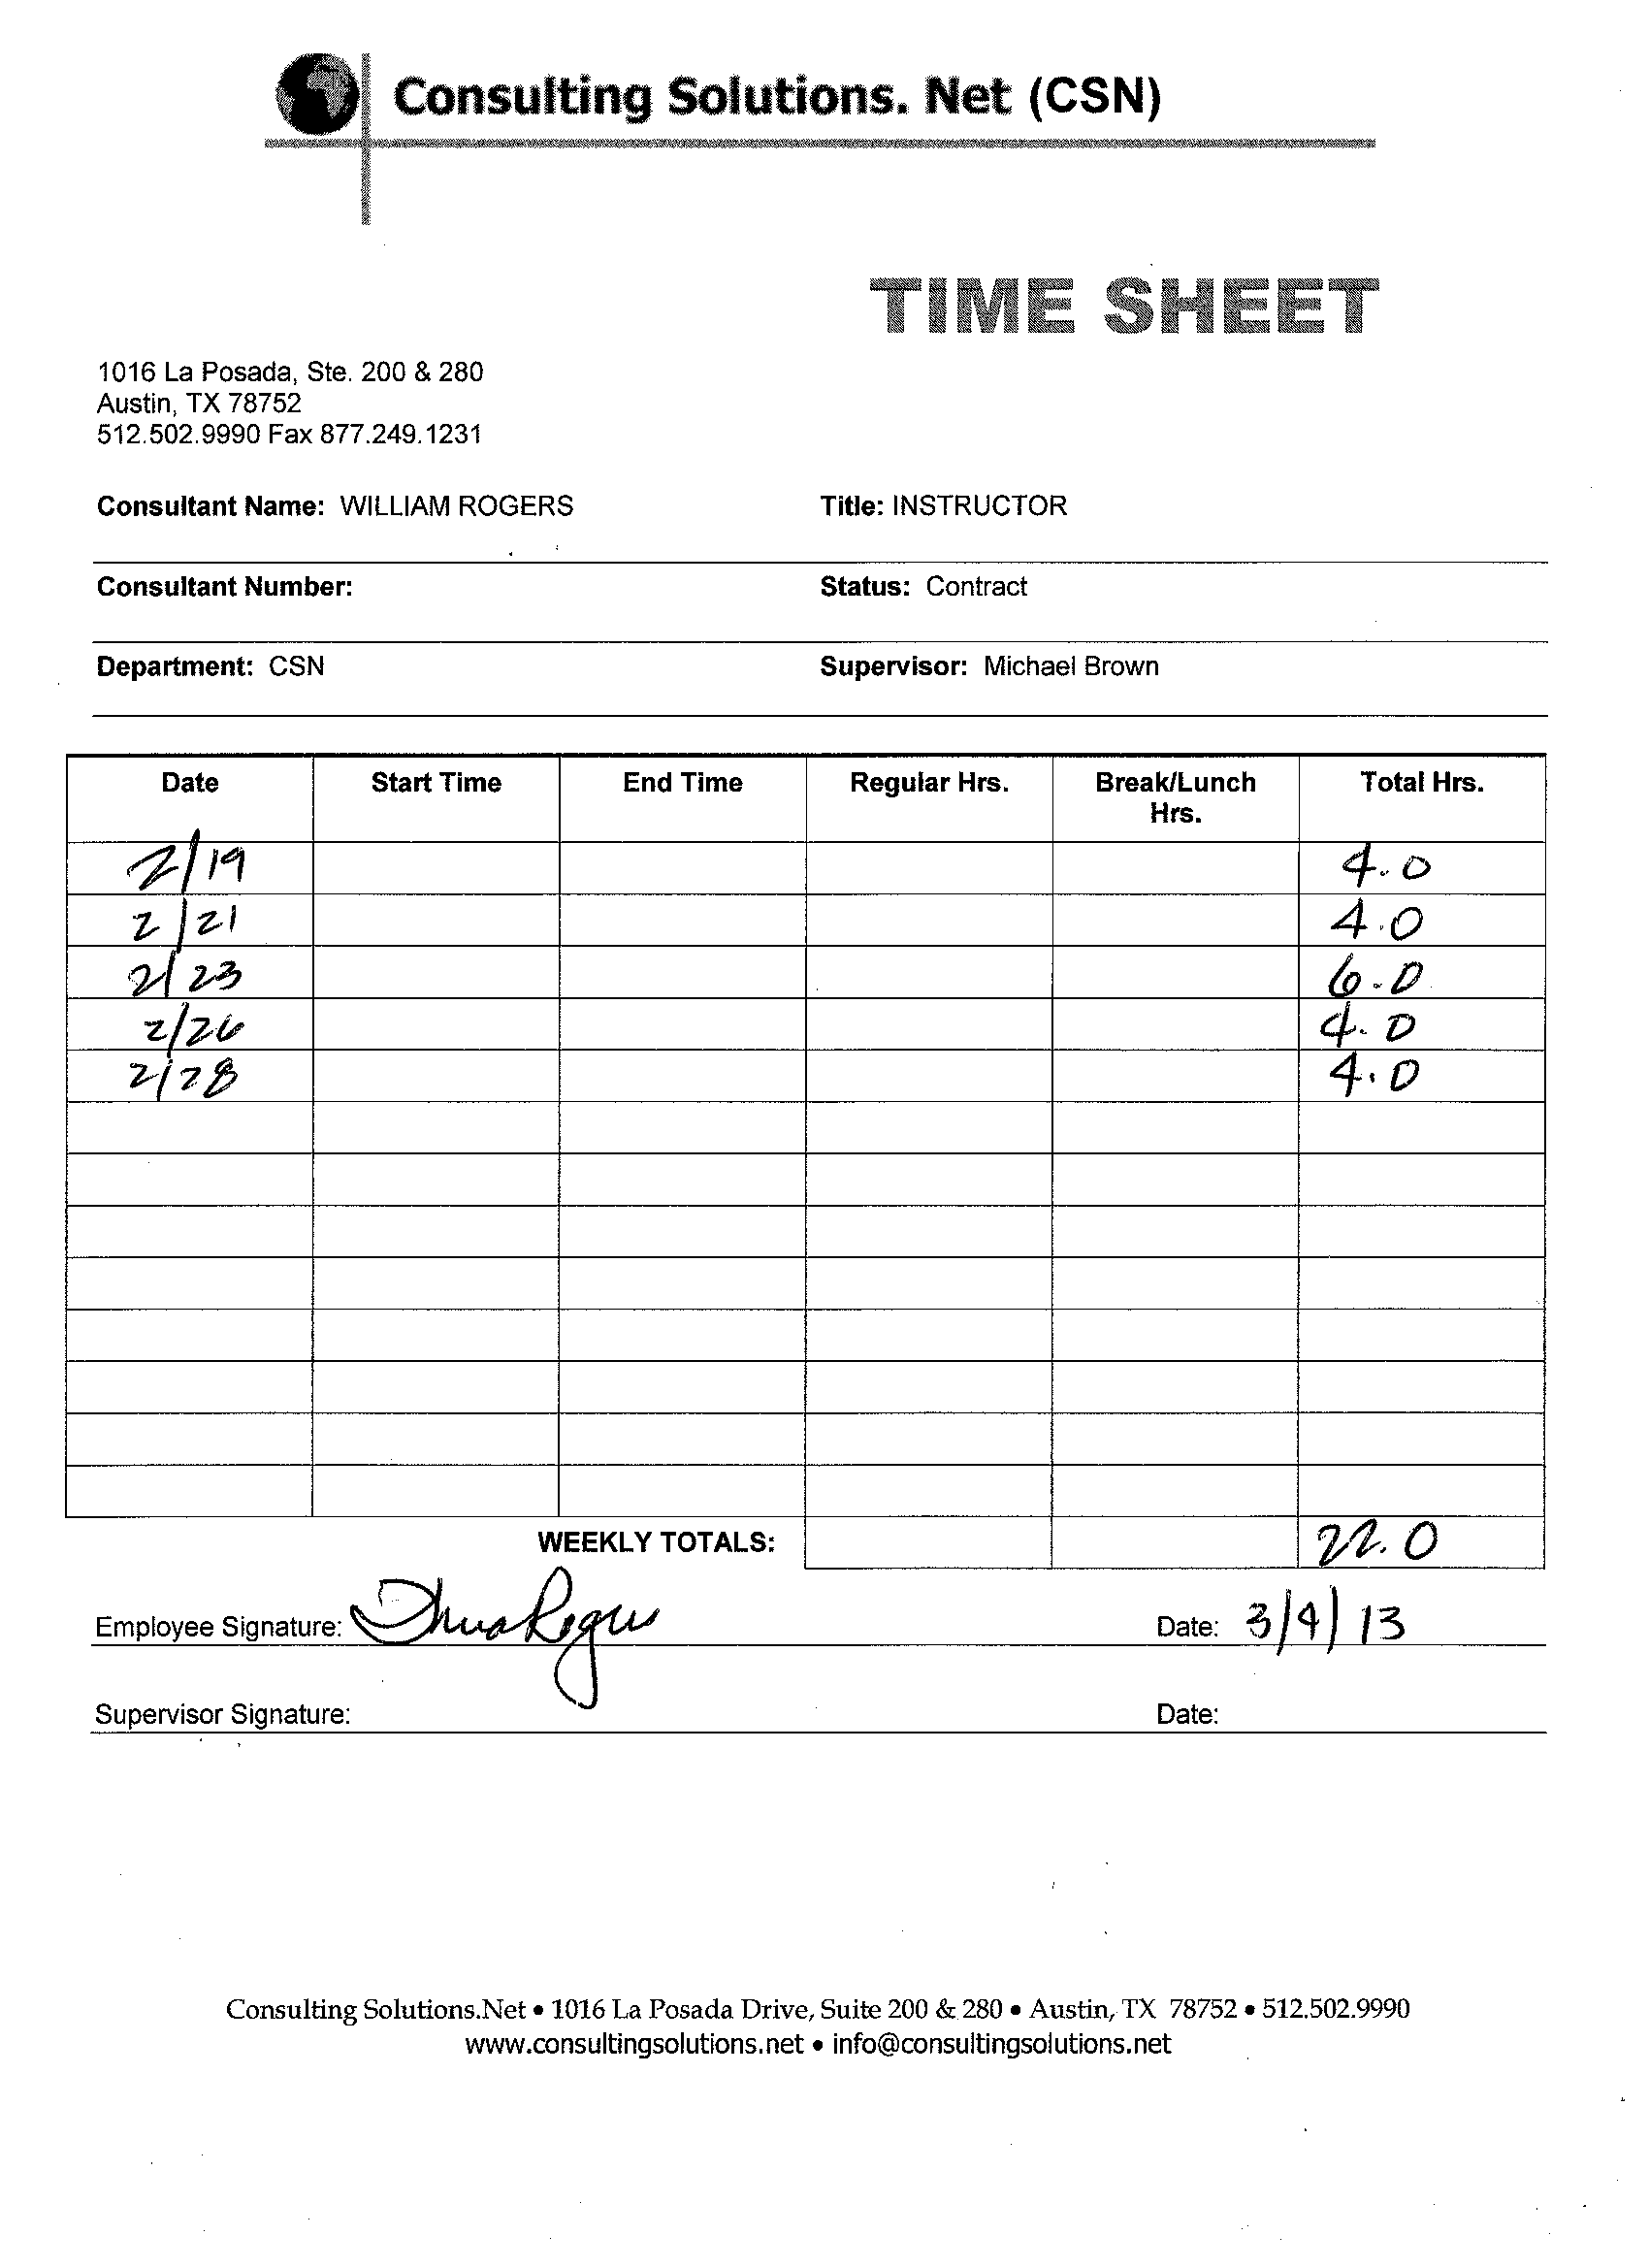 Consulting Solutions. Net (CSN)
TIME SHEET
1016 La Posada, Ste. 200 & 280
Austin, TX 78752
512.502.9990 Fax 877.249.1231
Consultant Name: WILLIAM ROGERS Title: INSTRUCTOR
Consultant Number: Status: Contract
Department: CSN Supervisor: Michael Brown
Date Start Time End Time Regular Hrs. Break/Lunch Hrs. Total Hrs.
2/19 4.0
2/21 4.0
2/23 6.0
2/26 4.0
2/28 4.0
WEEKLY TOTALS: 22.0
Employee Signature: Rogers Date: 3/4/13
Supervisor Signature: Date:
Consulting Solutions.Net • 1016 La Posada Drive, Suite 200 & 280 • Austin, TX 78752 • 512.502.9990
www.consultingsolutions.net • info@consultingsolutions.net